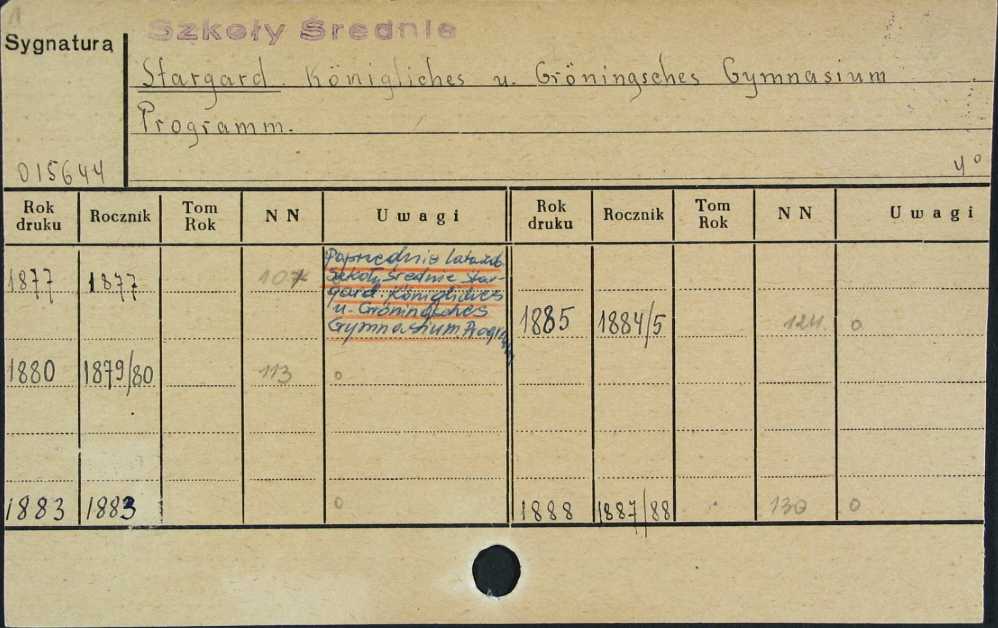 Szkoły Średnie
Sygnatura
Stargard. Königliches u. Gröningsches Gymnasium
Programm.
015644
4°
Rok druku | Rocznik | Tom Rok | N N | U w a g i | Rok druku | Rocznik | Tom Rok | N N | U w a g i
1877 | 1877 | 107 | Poprzednie lata zob.
Szkoły Średnie Star-
gard. Königliches
u. Gröningsches
Gymnasium. Programm
1885 | 1884/5 | 124 | 0
1880 | 1879/80 | 113 | 0
1883 | 1883 | 0 | 1888 | 1887/88 | 130 | 0